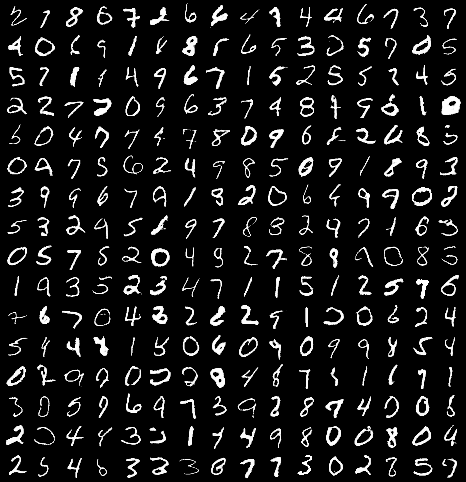 2 7 8 6 7 2 6 6 4 9 4 4 6 7 3 7
4 0 6 9 1 8 8 5 6 5 3 0 5 7 0 5
5 7 1 9 4 9 6 7 1 5 2 5 5 7 4 5
2 2 7 7 0 9 6 3 7 4 8 9 9 6 1 0
5 0 4 7 7 4 7 8 0 9 6 8 2 6 8 5
0 9 7 5 6 2 4 9 8 5 0 9 1 8 9 3
3 9 9 6 7 9 1 8 2 0 6 6 9 9 0 2
5 3 2 9 5 8 9 7 8 8 2 9 7 1 6 3
0 5 7 5 2 0 4 9 2 7 8 9 9 0 8 5
1 9 3 5 2 3 4 7 1 1 5 1 2 5 9 6
7 6 7 0 4 3 2 8 2 5 1 0 0 6 2 4
5 9 4 8 1 5 0 6 0 9 0 9 9 8 5 4
0 2 9 9 0 5 2 8 4 8 7 5 1 6 9 1
3 0 5 9 6 9 7 3 9 2 8 7 4 0 0 8
2 0 4 4 3 5 1 9 4 9 8 0 0 8 0 9
2 5 4 6 3 3 3 8 7 7 3 0 2 8 5 9